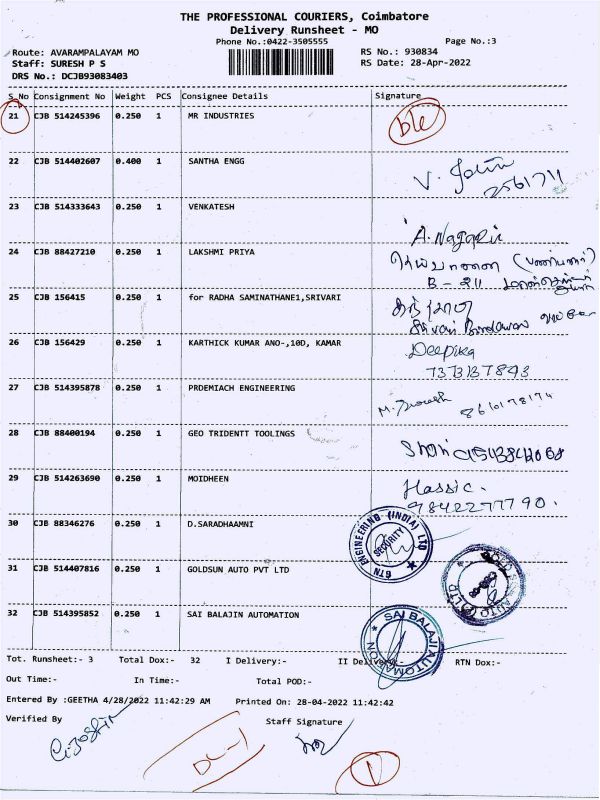 THE PROFESSIONAL COURIERS, Coimbatore
Delivery Runsheet - MO
Phone No.:0422-3505555 Page No.:3
Route: AVARAMPALAYAM MO RS No.: 930834
Staff: SURESH P S RS Date: 28-Apr-2022
DRS No.: DCJB93083403
S_No Consignment No Weight PCS Consignee Details Signature
21 CJB 514245396 0.250 1 MR INDUSTRIES
22 CJB 514402607 0.400 1 SANTHA ENGG
V. John
2561711
23 CJB 514333643 0.250 1 VENKATESH
24 CJB 88427210 0.250 1 LAKSHMI PRIYA
B - 211
25 CJB 156415 0.250 1 for RADHA SAMINATHANE1,SRIVARI
26 CJB 156429 0.250 1 KARTHICK KUMAR ANO-,10D, KAMAR
Deepika
7373137893
27 CJB 514395878 0.250 1 PRDEMIACH ENGINEERING
28 CJB 88400194 0.250 1 GEO TRIDENTT TOOLINGS
29 CJB 514263690 0.250 1 MOIDHEEN
Hassic.
9842277790.
30 CJB 88346276 0.250 1 D.SARADHAAMNI
GTN ENGINEERING (INDIA) LTD
SECURITY
31 CJB 514407816 0.250 1 GOLDSUN AUTO PVT LTD
32 CJB 514395852 0.250 1 SAI BALAJIN AUTOMATION
SAI BALAJI AUTOMATION
Tot. Runsheet:- 3 Total Dox:- 32 I Delivery:- II Delivery:- RTN Dox:-
Out Time:- In Time:- Total POD:-
Entered By :GEETHA 4/28/2022 11:42:29 AM Printed On: 28-04-2022 11:42:42
Verified By Staff Signature
DL-1
1